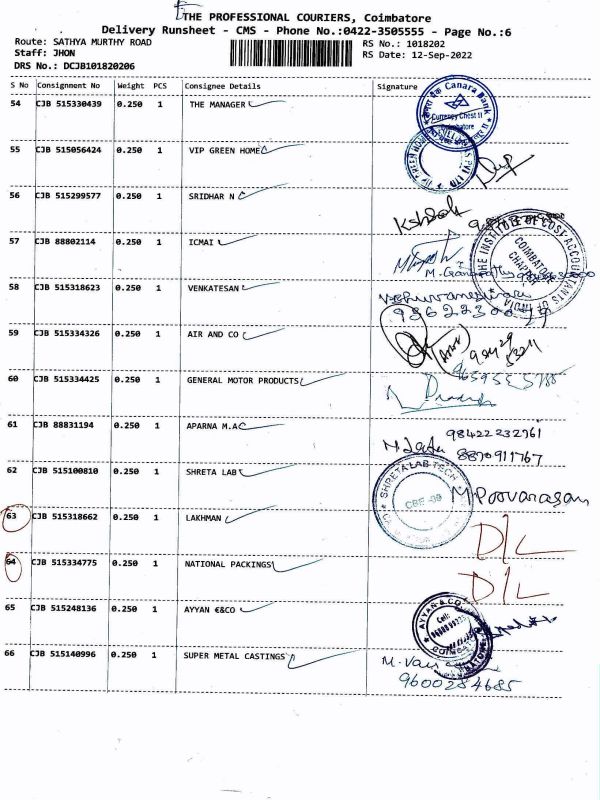 THE PROFESSIONAL COURIERS, Coimbatore
Delivery Runsheet - CMS - Phone No.:0422-3505555 - Page No.:6
Route: SATHYA MURTHY ROAD
Staff: JHON
DRS No.: DCJB101820206
RS No.: 1018202
RS Date: 12-Sep-2022
S No Consignment No Weight PCS Consignee Details Signature
54 CJB 515330439 0.250 1 THE MANAGER
Canara Bank
Currency Chest II
Coimbatore
55 CJB 515056424 0.250 1 VIP GREEN HOME
56 CJB 515299577 0.250 1 SRIDHAR N
57 CJB 88802114 0.250 1 ICMAI
THE INSTITUTE OF COST ACCOUNTANTS OF INDIA
COIMBATORE
CHAPTER
58 CJB 515318623 0.250 1 VENKATESAN
59 CJB 515334326 0.250 1 AIR AND CO
60 CJB 515334425 0.250 1 GENERAL MOTOR PRODUCTS
61 CJB 88831194 0.250 1 APARNA M.A
98422232961
8870911767
62 CJB 515100810 0.250 1 SHRETA LAB
SHRETA LAB TECH
M. Poovarasan
63 CJB 515318662 0.250 1 LAKHMAN D/L
64 CJB 515334775 0.250 1 NATIONAL PACKINGS D/L
65 CJB 515248136 0.250 1 AYYAN €&CO
AYYAN & CO
Cell:
66 CJB 515140996 0.250 1 SUPER METAL CASTINGS
9600284685